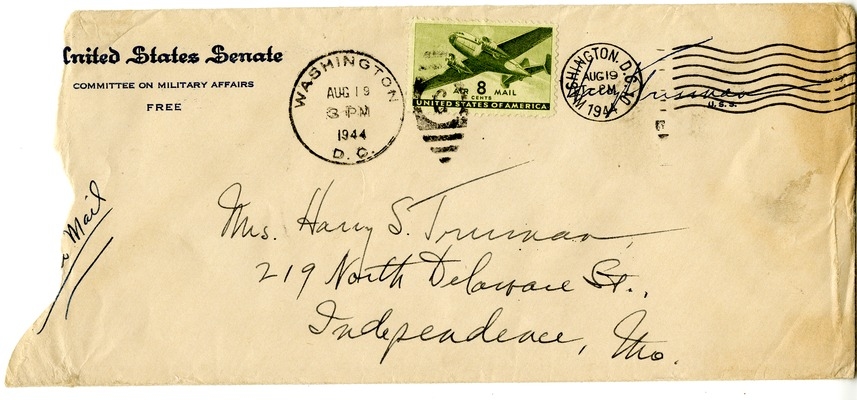 United States Senate
COMMITTEE ON MILITARY AFFAIRS
FREE
WASHINGTON
AUG 19
3 PM
1944
D. C.
AIR 8 MAIL
CENTS
UNITED STATES OF AMERICA
WASHINGTON, D.C.
AUG 19
PM
1944
Truman
U.S.S.
Mail
Mrs. Harry S. Truman,
219 North Delaware St.,
Independence, Mo.